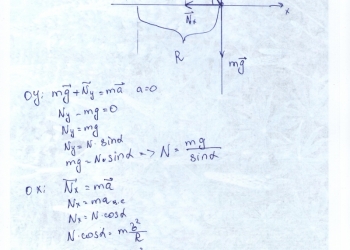 N⃗ₓ
x
R
mg⃗
Oy: mg⃗ + N⃗y = ma⃗ a=0
Ny - mg = 0
Ny = mg
Ny = N · sinα
mg = N · sinα => N = mg/sinα
Ox: N⃗x = ma⃗
Nx = ma
Nx = N · cosα
N · cosα = m
R